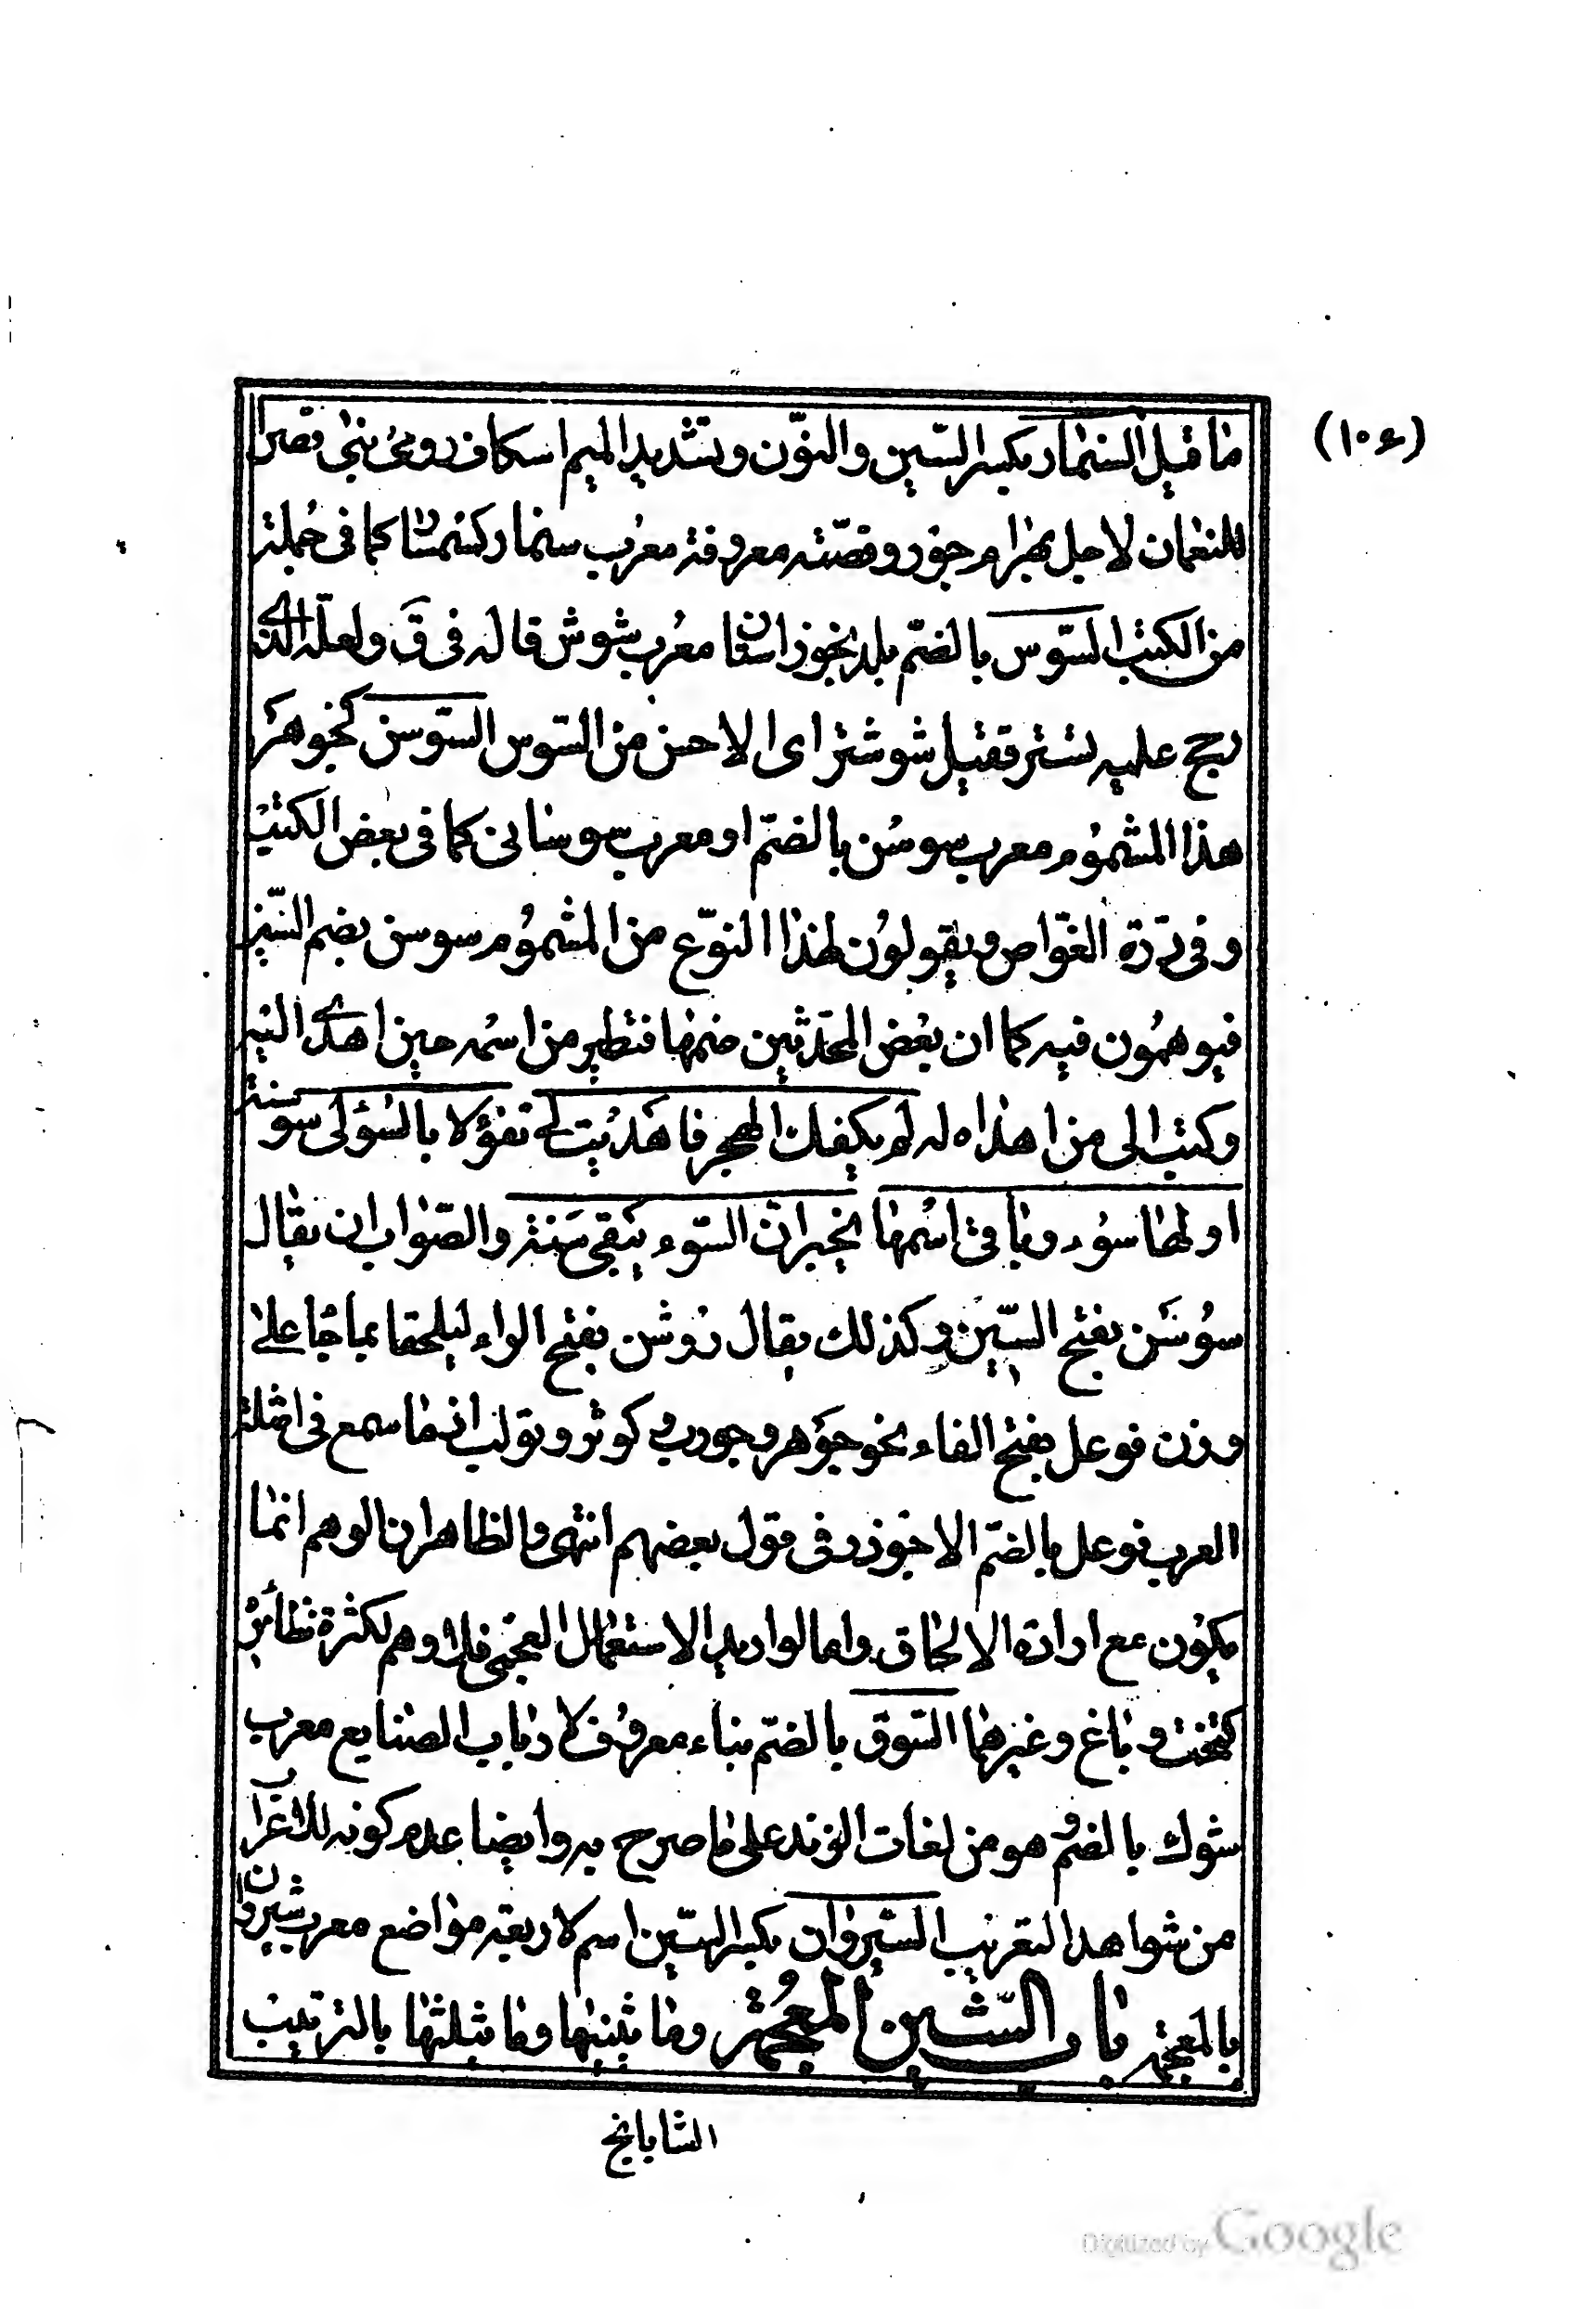 (١٠٤)
ما قيل السنمار بكسر السّين والنّون وتشديد الميم اسكاف رومى بنى قصرا
للنعمان لاجل بهرام جور وقصّته معروفة معرب سنمار كسمسار كما فى جملة
من الكتب السّوس بالضمّ بلد بخوزاستان معرب شوش قاله فى ق ولعله الذى
رجح عليه تستر فقيل شوشتر اى الاحسن من السّوس السّوسن كجوهر
هذا المشموم معرب سوسن بالضمّ او معرب سوسانى كما فى بعض الكتب
وفى درّة الغوّاص ويقولون لهذا النوّع من المشموم سوسن بضم السّين
فيوهمون فيه كما ان بعض المحدّثين ضمها فتطير من اسمه حين اهدى اليه
وكتب الى من اهداه له لم يكفك الهجر فاهديت لى تفؤلا بالسّؤلى سوسنة
اولها سوء وباقى اسمها يخبر ان السّوء يبقى سنة والصّواب ان يقال
سوسن بفتح السّين وكذلك يقال روشن بفتح الراء ليلحقا بما جاء على
وزن فوعل بفتح الفاء نحو جوهر وجورب وكوثر وتولب انه ما سمع فى امثلة
العرب فوعل بالضمّ الا جؤذر فى قول بعضهم انتهى والظاهر ان الوهم انما
يكون مع ارادة الالحاق واما لو اريد الاستعمال العجمى فلا وهم لكثرة نظائره
كبخت وباغ وغيرهما السّوق بالضمّ بناء معروف لارباب الصنايع معرب
شوك بالضم وهو من لغات الزند على ما صرح به وايضا عدم كونه للاعراب
من شواهد التعريب السّيروان بكسر السّين اسم لاربعة مواضع معرب شيروان
بالمعجمة باب الشّين المعجمة وما يثنيها وما يثلثها بالترتيب
الشابانج
Digitized by Google